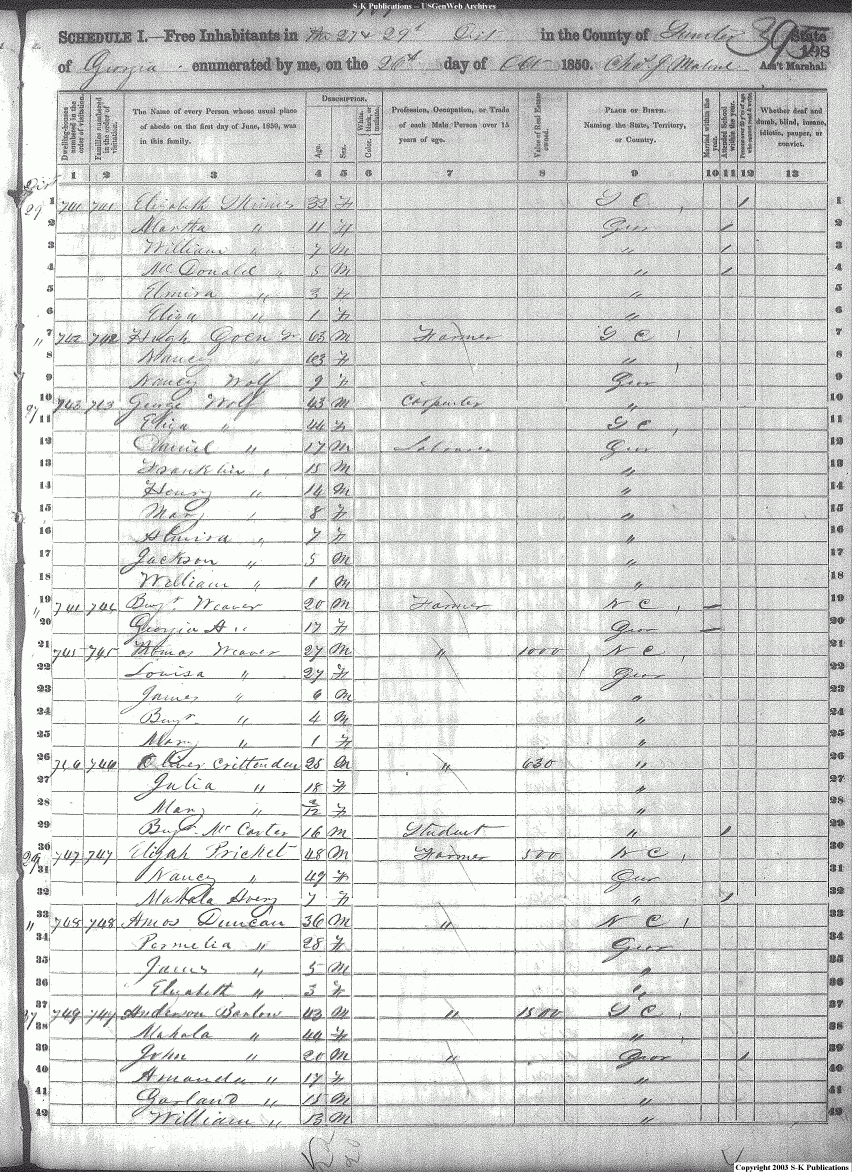 S-K Publications -- USGenWeb Archives
SCHEDULE I.—Free Inhabitants in the 27 & 29th Dist in the County of Sumter State 395
198
of Georgia enumerated by me, on the 26th day of Oct 1850. Chas J Malone Ass't Marshal.
Dwelling-houses numbered in the order of visitation.
Families numbered in the order of visitation.
The Name of every Person whose usual place of abode on the first day of June, 1850, was in this family.
DESCRIPTION.
Age.
Sex.
White, black, or mulatto. Color.
Profession, Occupation, or Trade of each Male Person over 15 years of age.
Value of Real Estate owned.
PLACE OF BIRTH. Naming the State, Territory, or Country.
Married within the year.
Attended School within the year.
Persons over 20 y'rs of age who cannot read & write.
Whether deaf and dumb, blind, insane, idiotic, pauper, or convict.
1 2 3 4 5 6 7 8 9 10 11 12 13
Dist
29 1 741 741 Elizabeth 39 F S C / 1
2 Martha " 11 F Geor / 2
3 William " 7 M " / 3
4 McDonald " 5 M " / 4
5 Elmira " 3 F " 5
6 Eliza " 1 F " 6
" 7 742 742 Hugh Goen 63 M Farmer S C 7
8 Nancy " 63 F " 8
9 Nancy Wolf 9 F Geor 9
27 10 743 743 George Wolf 43 M Carpenter " 10
11 Eliza " 44 F S C 11
12 Daniel " 17 M Laborer Geor 12
13 Franklin " 15 M " 13
14 Henry " 14 M " 14
15 Mary " 8 F " 15
16 Elmira " 7 F " 16
17 Jackson " 5 M " 17
18 William " 1 M " 18
" 19 744 744 Benjn. Weaver 20 M Farmer N C — 19
20 Georgia A " 17 F Geor — 20
21 745 745 Thomas Weaver 27 M " 1000 N C 21
22 Louisa " 27 F Geor 22
23 James " 6 M " 23
24 Benjn. " 4 M " 24
25 Mary " 1 F " 25
26 746 746 Oliver Crittenden 25 M " 630 " 26
27 Julia " 18 F " 27
28 Mary " /12 F " 28
29 Benjn. McCarter 16 M Student " / 29
29 30 747 747 Elijah Pricket 48 M Farmer 500 N C 30
31 Nancy " 49 F Geor 31
32 Mahala Avery 7 F " / 32
" 33 748 748 Amos Duncan 36 M " N C 33
34 Permelia " 28 F Geor 34
35 James " 5 M " 35
36 Elizabeth " 3 F " 36
27 37 749 749 Anderson Barlow 43 M " 1500 S C 37
38 Mahala " 44 F " 38
39 John " 20 M " Geor / 39
40 Amanda " 17 F " 40
41 Garland " 15 M " 41
42 William " 13 M " 42
Copyright 2003 S-K Publications